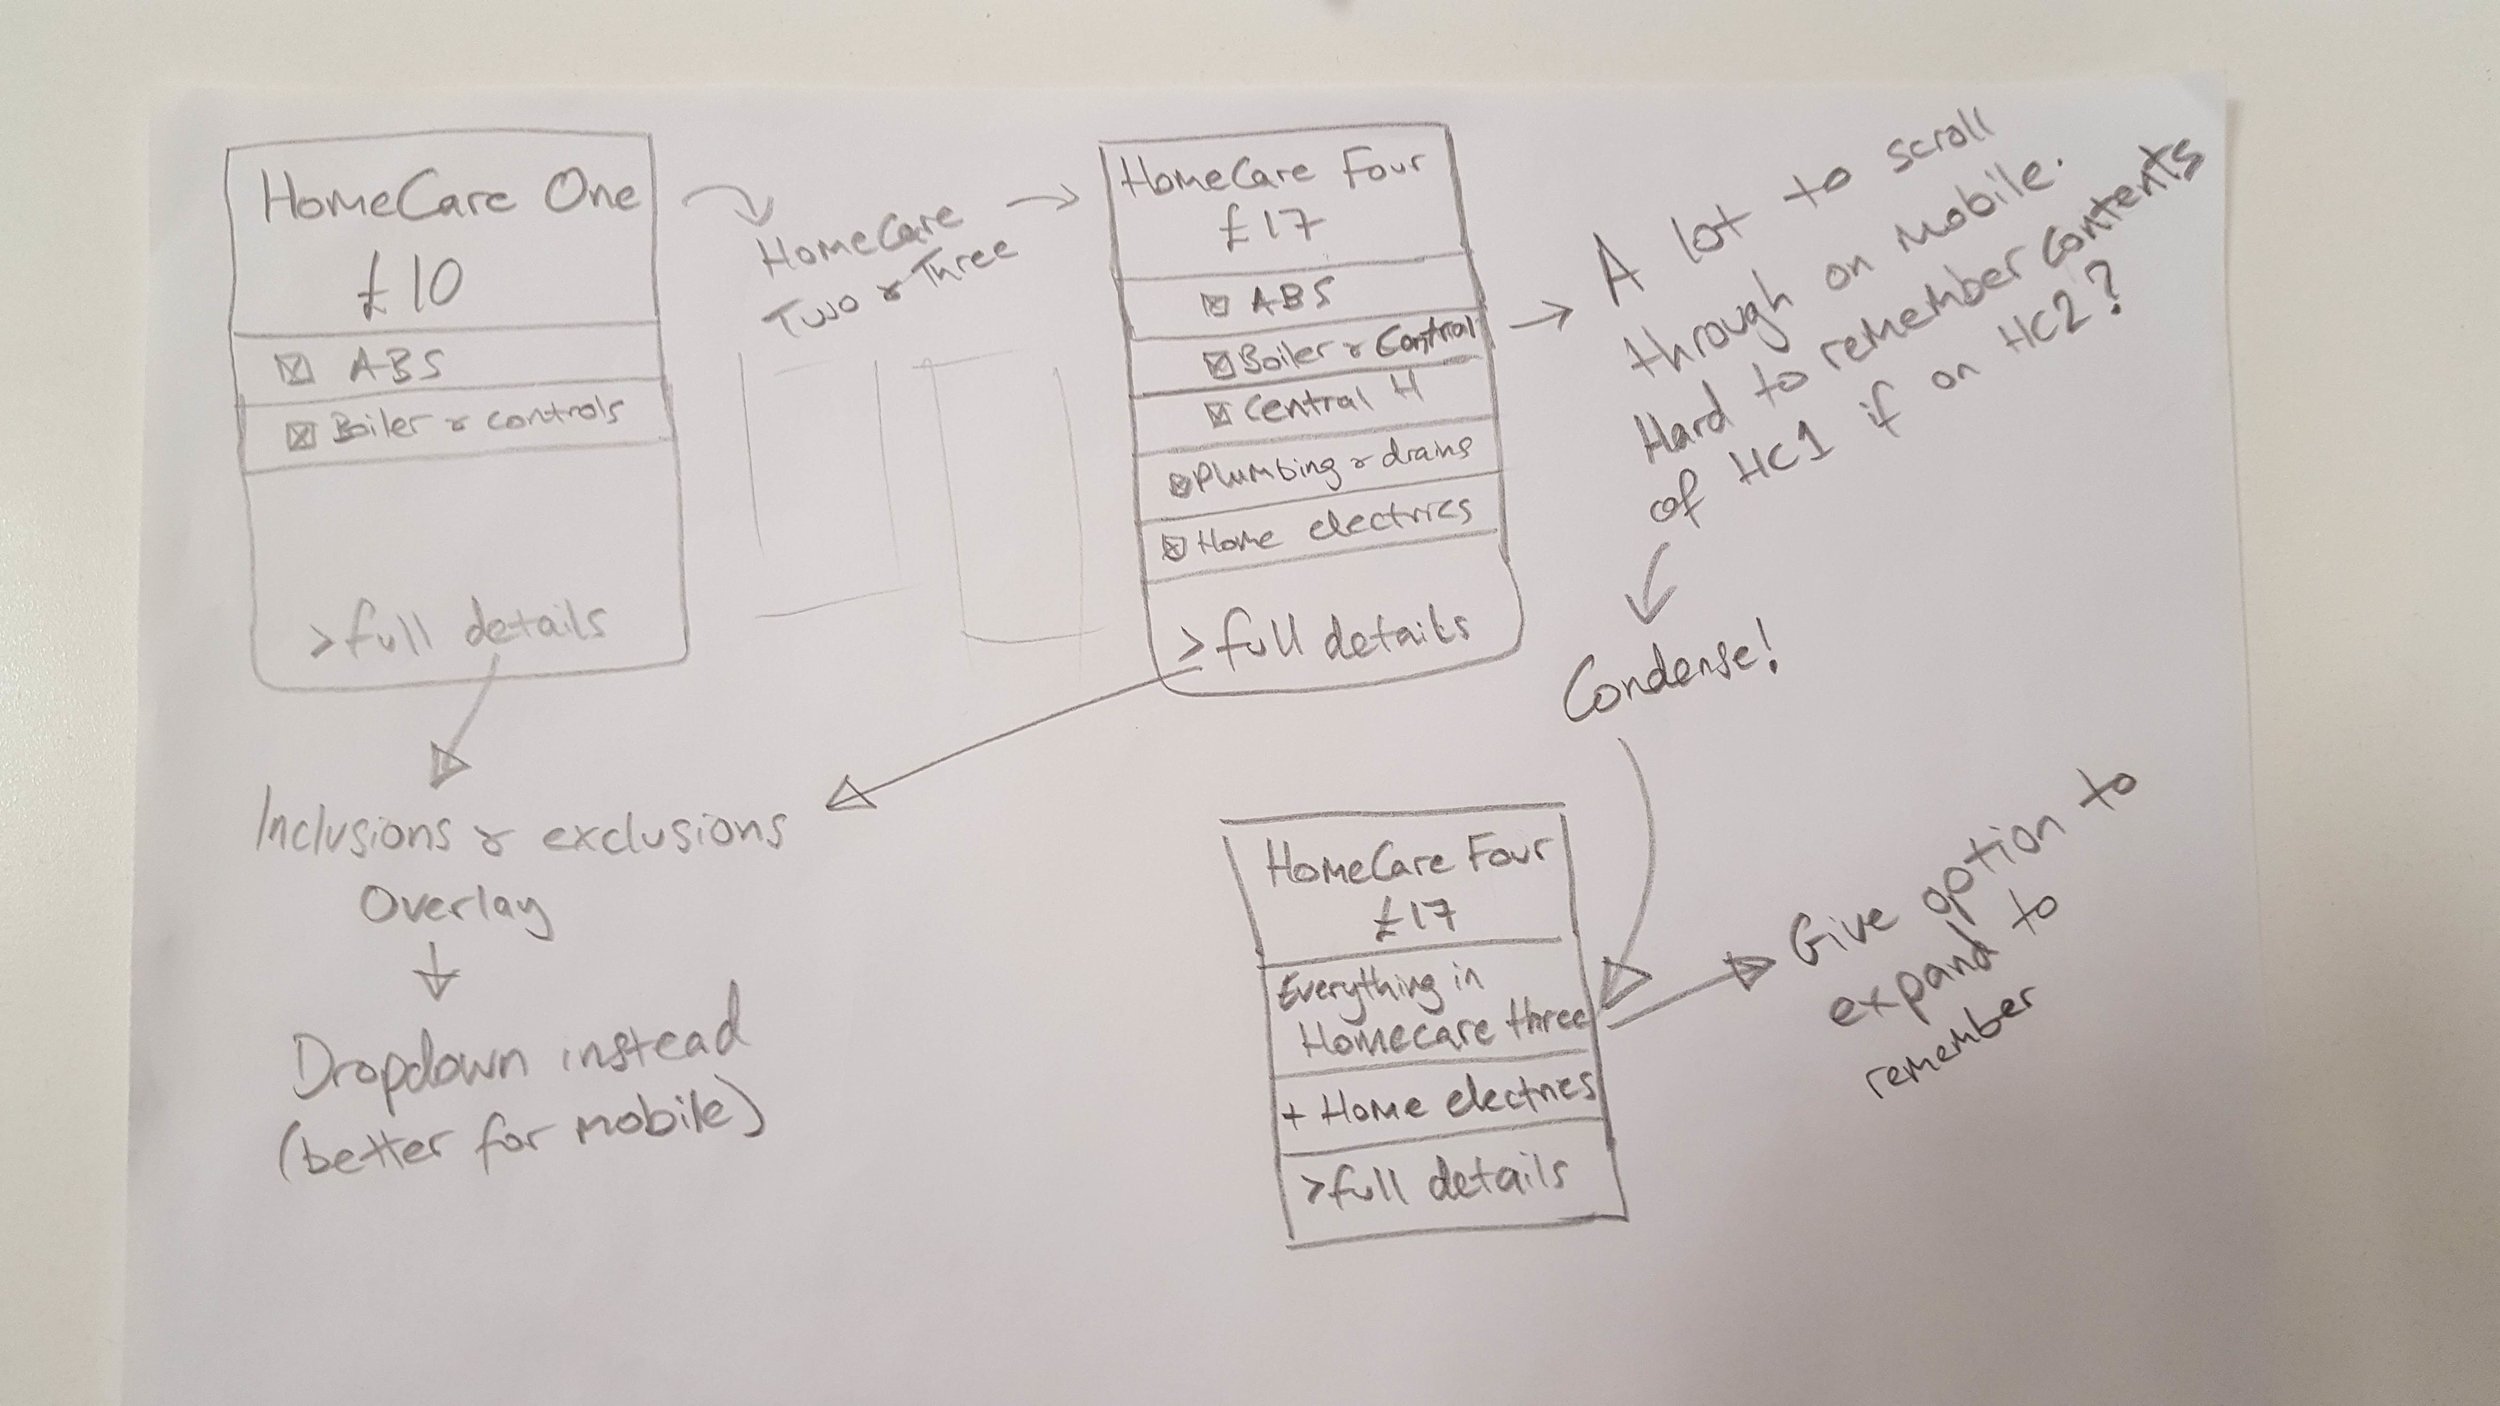 HomeCare One
£10
ABS
Boiler & controls
>full details
HomeCare
Two & Three
HomeCare Four
£17
ABS
Boiler & Control
Central H
Plumbing & drains
Home electrics
>full details
A lot to scroll
through on mobile.
Hard to remember contents
of HC1 if on HC2?
Condense!
Inclusions & exclusions
Overlay
Dropdown instead
(better for mobile)
HomeCare Four
£17
Everything in
Homecare three
+ Home electrics
>full details
Give option to
expand to
remember